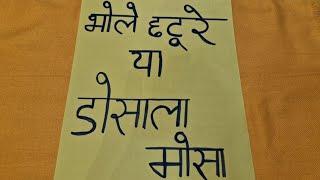 भोले हटूरे
या
डोसाला
मोसा